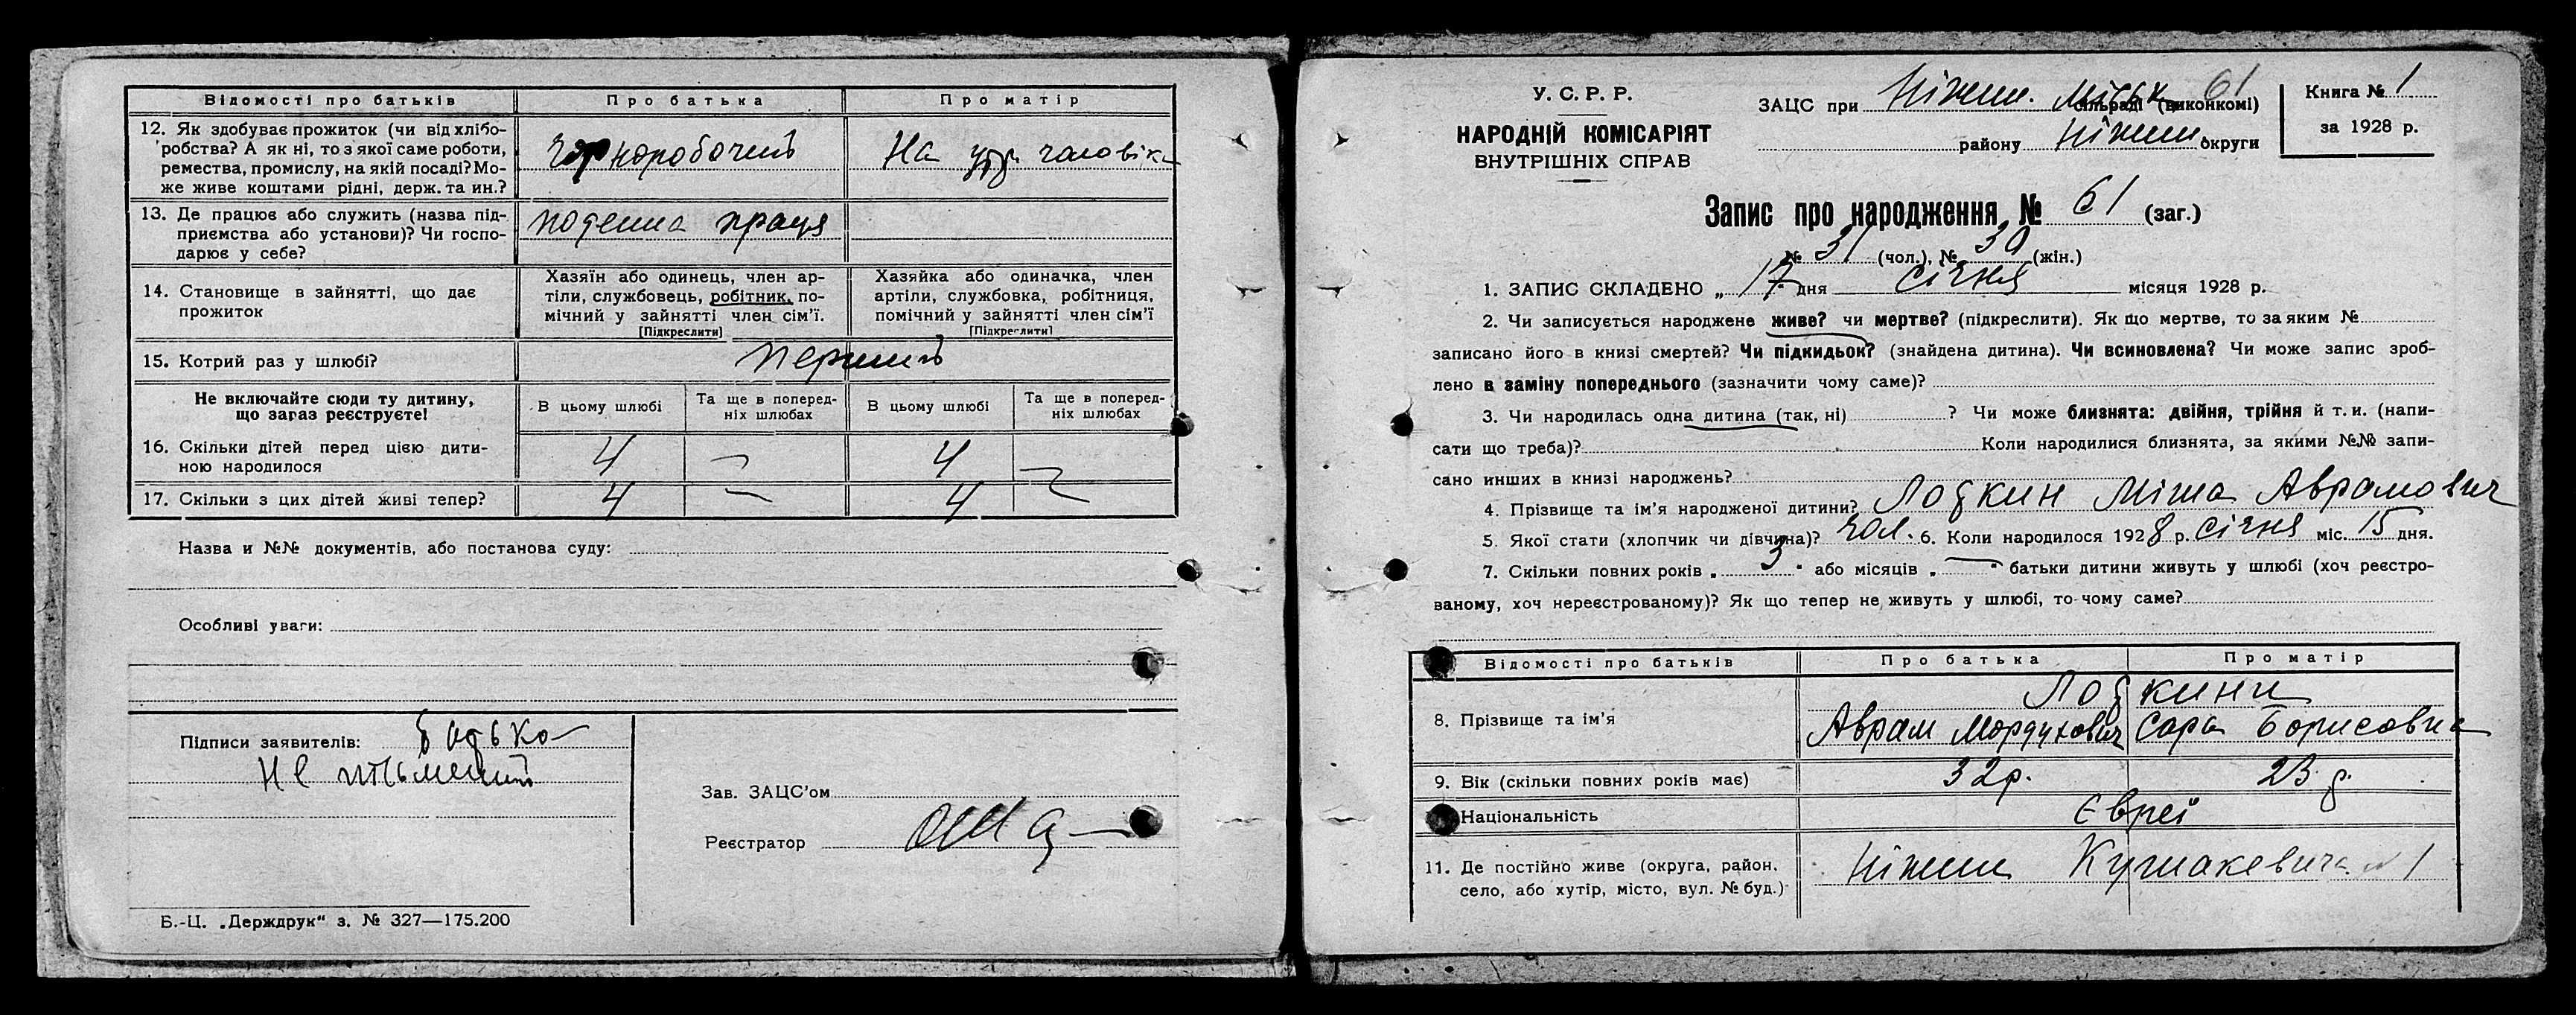 Відомості про батьків Про батька Про матір
12. Як здобуває прожиток (чи від хлібо-
робства? А як ні, то з якої саме роботи,
ремества, промислу, на якій посаді? Мо-
же живе коштами рідні, держ. та ин.?
Чорноробочий На утр. чоловіка
13. Де працює або служить (назва під-
приємства або установи)? Чи госпо-
дарює у себе?
поденна праця
14. Становище в зайнятті, що дає
прожиток
Хазяїн або одинець, член ар-
тіли, службовець, робітник, по-
мічний у зайнятті член сім'ї.
[Підкреслити]
Хазяйка або одиначка, член
артіли, службовка, робітниця,
помічний у зайнятті член сім'ї
[Підкреслити]
15. Котрий раз у шлюбі? перший
Не включайте сюди ту дитину,
що зараз реєструєте!
В цьому шлюбі
Та ще в поперед-
ніх шлюбах
В цьому шлюбі
Та ще в поперед-
ніх шлюбах
16. Скільки дітей перед цією дити-
ною народилося
4 — 4 —
17. Скільки з цих дітей живі тепер? 4 — 4 —
Назва и №№ документів, або постанова суду:
Особливі уваги:
Підписи заявителів: батько
Не письменний
Зав. ЗАЦС'ом
Реєстратор
Б.-Ц. „Держдрук“ з. № 327—175.200
У. С. Р. Р.
НАРОДНІЙ КОМІСАРІЯТ
ВНУТРІШНІХ СПРАВ
61
ЗАЦС при Ніжин. Міськ сільраді (виконкомі)
району Ніжин округи
Книга № 1
за 1928 р.
Запис про народження № 61 (заг.)
№ 31 (чол.), № 30 (жін.)
1. ЗАПИС СКЛАДЕНО „ 17 дня січня місяця 1928 р.
2. Чи записується народжене живе? чи мертве? (підкреслити). Як що мертве, то за яким №
записано його в книзі смертей? Чи підкидьок? (знайдена дитина). Чи всиновлена? Чи може запис зроб-
лено в заміну попереднього (зазначити чому саме)?
3. Чи народилась одна дитина (так, ні) ? Чи може близнята: двійня, трійня й т. и. (напи-
сати що треба)? Коли народилися близнята, за якими №№ запи-
сано инших в книзі народжень?
4. Прізвище та ім'я народженої дитини? Лобкин Міша Аврамович
5. Якої стати (хлопчик чи дівчина)? чол. 6. Коли народилося 1928 р. січня міс. 15 дня.
7. Скільки повних років „ 3 “ або місяців „ — “ батьки дитини живуть у шлюбі (хоч реєстро-
ваному, хоч нереєстрованому)? Як що тепер не живуть у шлюбі, то чому саме?
Відомості про батьків Про батька Про матір
Лобкини
8. Прізвище та ім'я Аврам Мордухович Сара Борисовна
9. Вік (скільки повних років має) 32 р. 23 р.
Національність Євреї
11. Де постійно живе (округа, район,
село, або хутір, місто, вул. № буд.)
Ніжин Кушакевича № 1